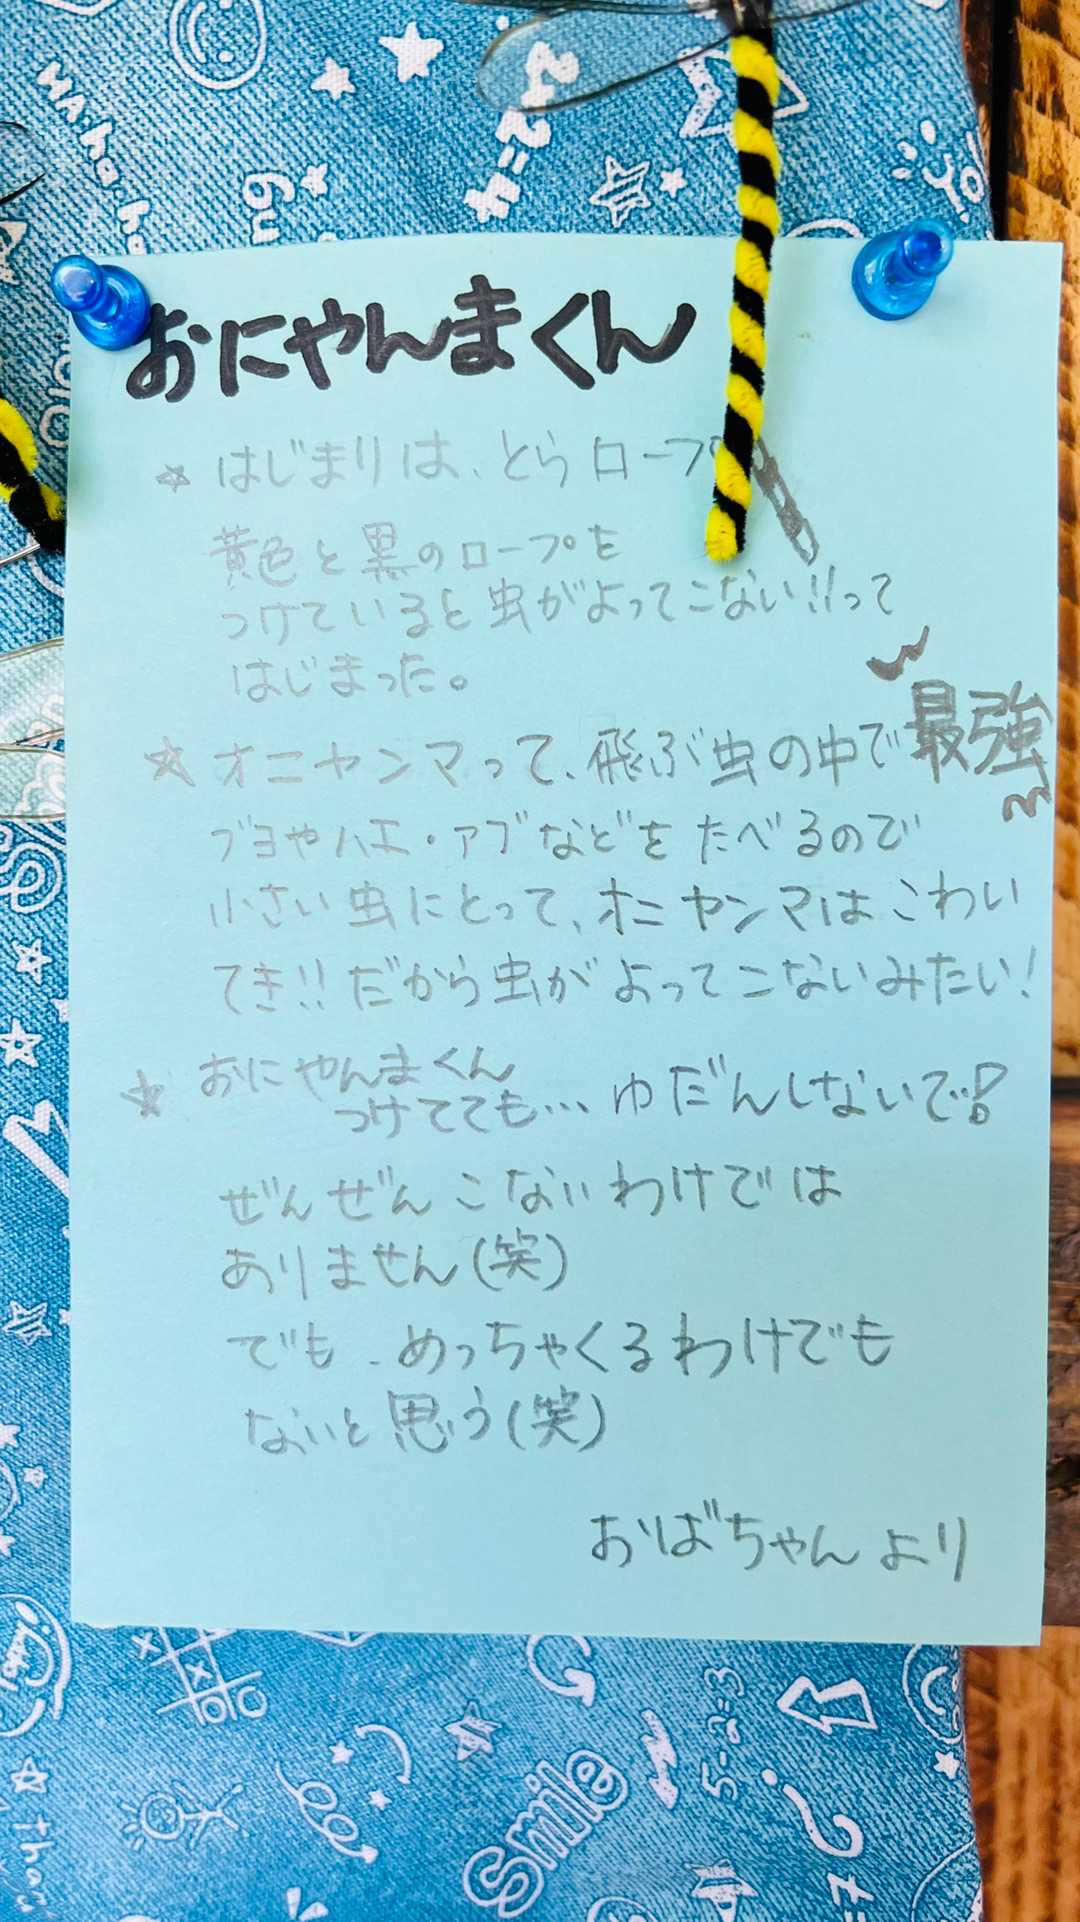 HA・ha・ha
2+2=4
おにやんまくん
☆ はじまりは、とらロープ
黄色と黒のロープを
つけていると虫がよってこない!!って
はじまった。
☆ オニヤンマって、飛ぶ虫の中で最強
ブヨやハエ・アブなどをたべるので
小さい虫にとって、オニヤンマはこわい
てき!!だから虫がよってこないみたい!
☆ おにやんまくん
つけてても… ゆだんしないで!
ぜんぜんこないわけでは
ありません(笑)
でも、めっちゃくるわけでも
ないと思う(笑)
おばちゃんより
5-2=3
Smile